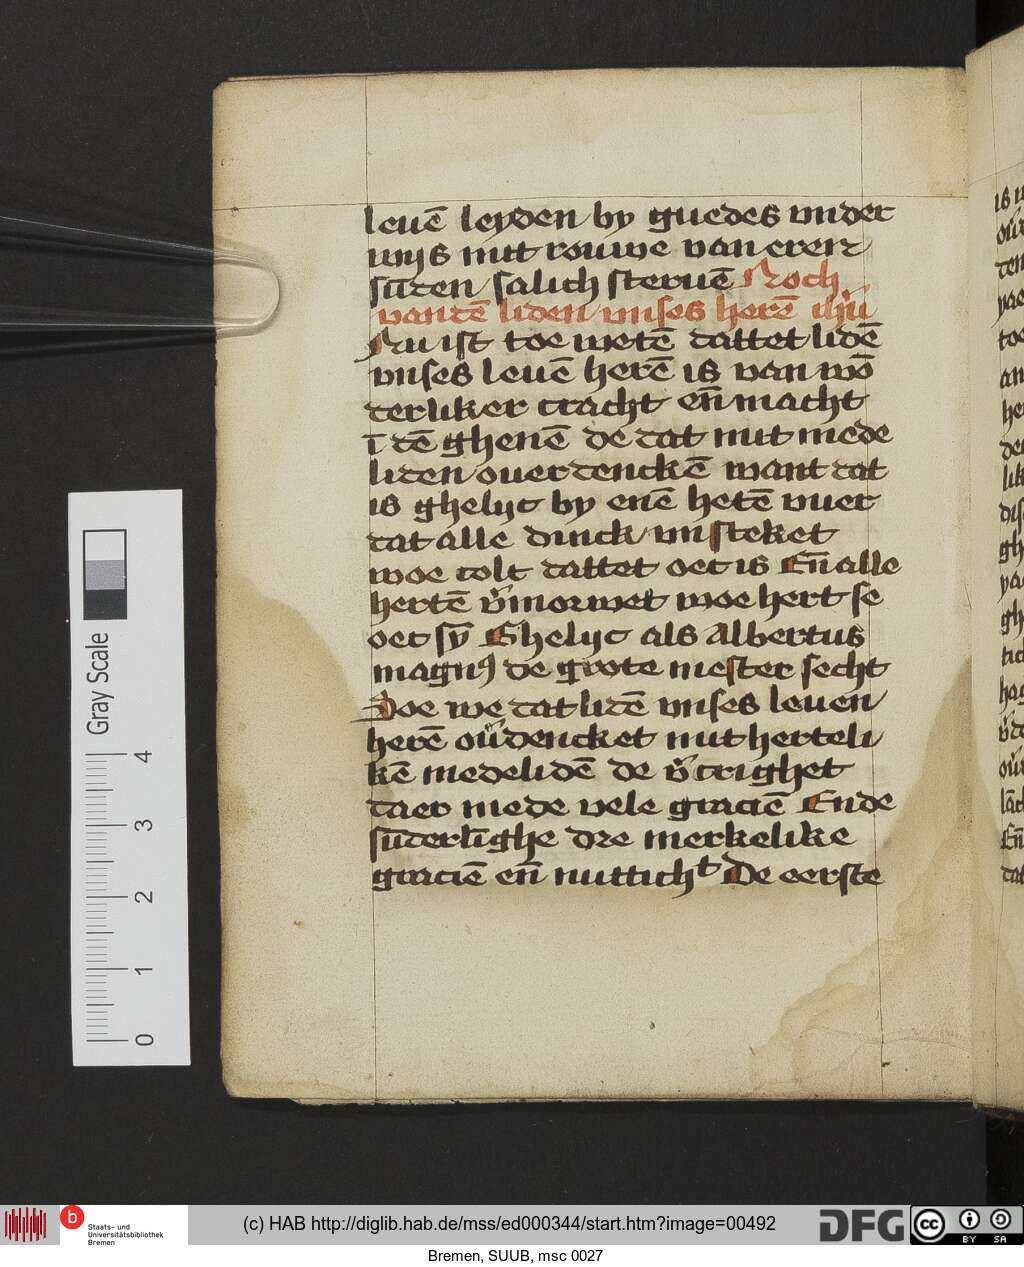 leuē leyden by guedes vnder
wijs mit rouwe van erer
sūden salich steruē Noch
van dē liden vnses herē ihū
Nu ist toe wetē dattet lidē
vnses leuē herē is van wō
derliker cracht eñ macht
ī dē ghenē de dat mit mede
liden ouerdenckē want dat
is ghelijc by enē hetē vuer
dat alle dinck vnsteket
woe colt dattet oec is Eñ alle
hertē v̄morwet woe hert se
oec sȳ Ghelijc als Albertus
magnꝰ de grote mester secht
Soe we dat lidē vnses leuen
herē ou̅dencket mit herteli
kē medelidē de v̄crighet
daer mede vele graciē Ende
sūderlīghe dre merkelike
graciē eñ nutticht De eerste
Gray Scale
4
3
2
1
0
Staats- und
Universitätsbibliothek
Bremen
(c) HAB http://diglib.hab.de/mss/ed000344/start.htm?image=00492
DFG
cc BY SA
Bremen, SUUB, msc 0027